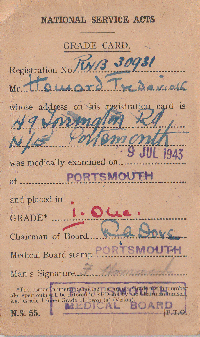 NATIONAL SERVICE ACTS
GRADE CARD.
Registration No. RNB 30931
Mr. Howard Frederick
whose address on his registration card is
49 Torrington Rd,
N/E Portsmouth
was medically examined on 9 JUL 1943
at PORTSMOUTH
and placed in
GRADE* I. One.
Chairman of Board
Medical Board stamp PORTSMOUTH
Man's Signature
MEDICAL BOARD
N.S. 55. [P.T.O.